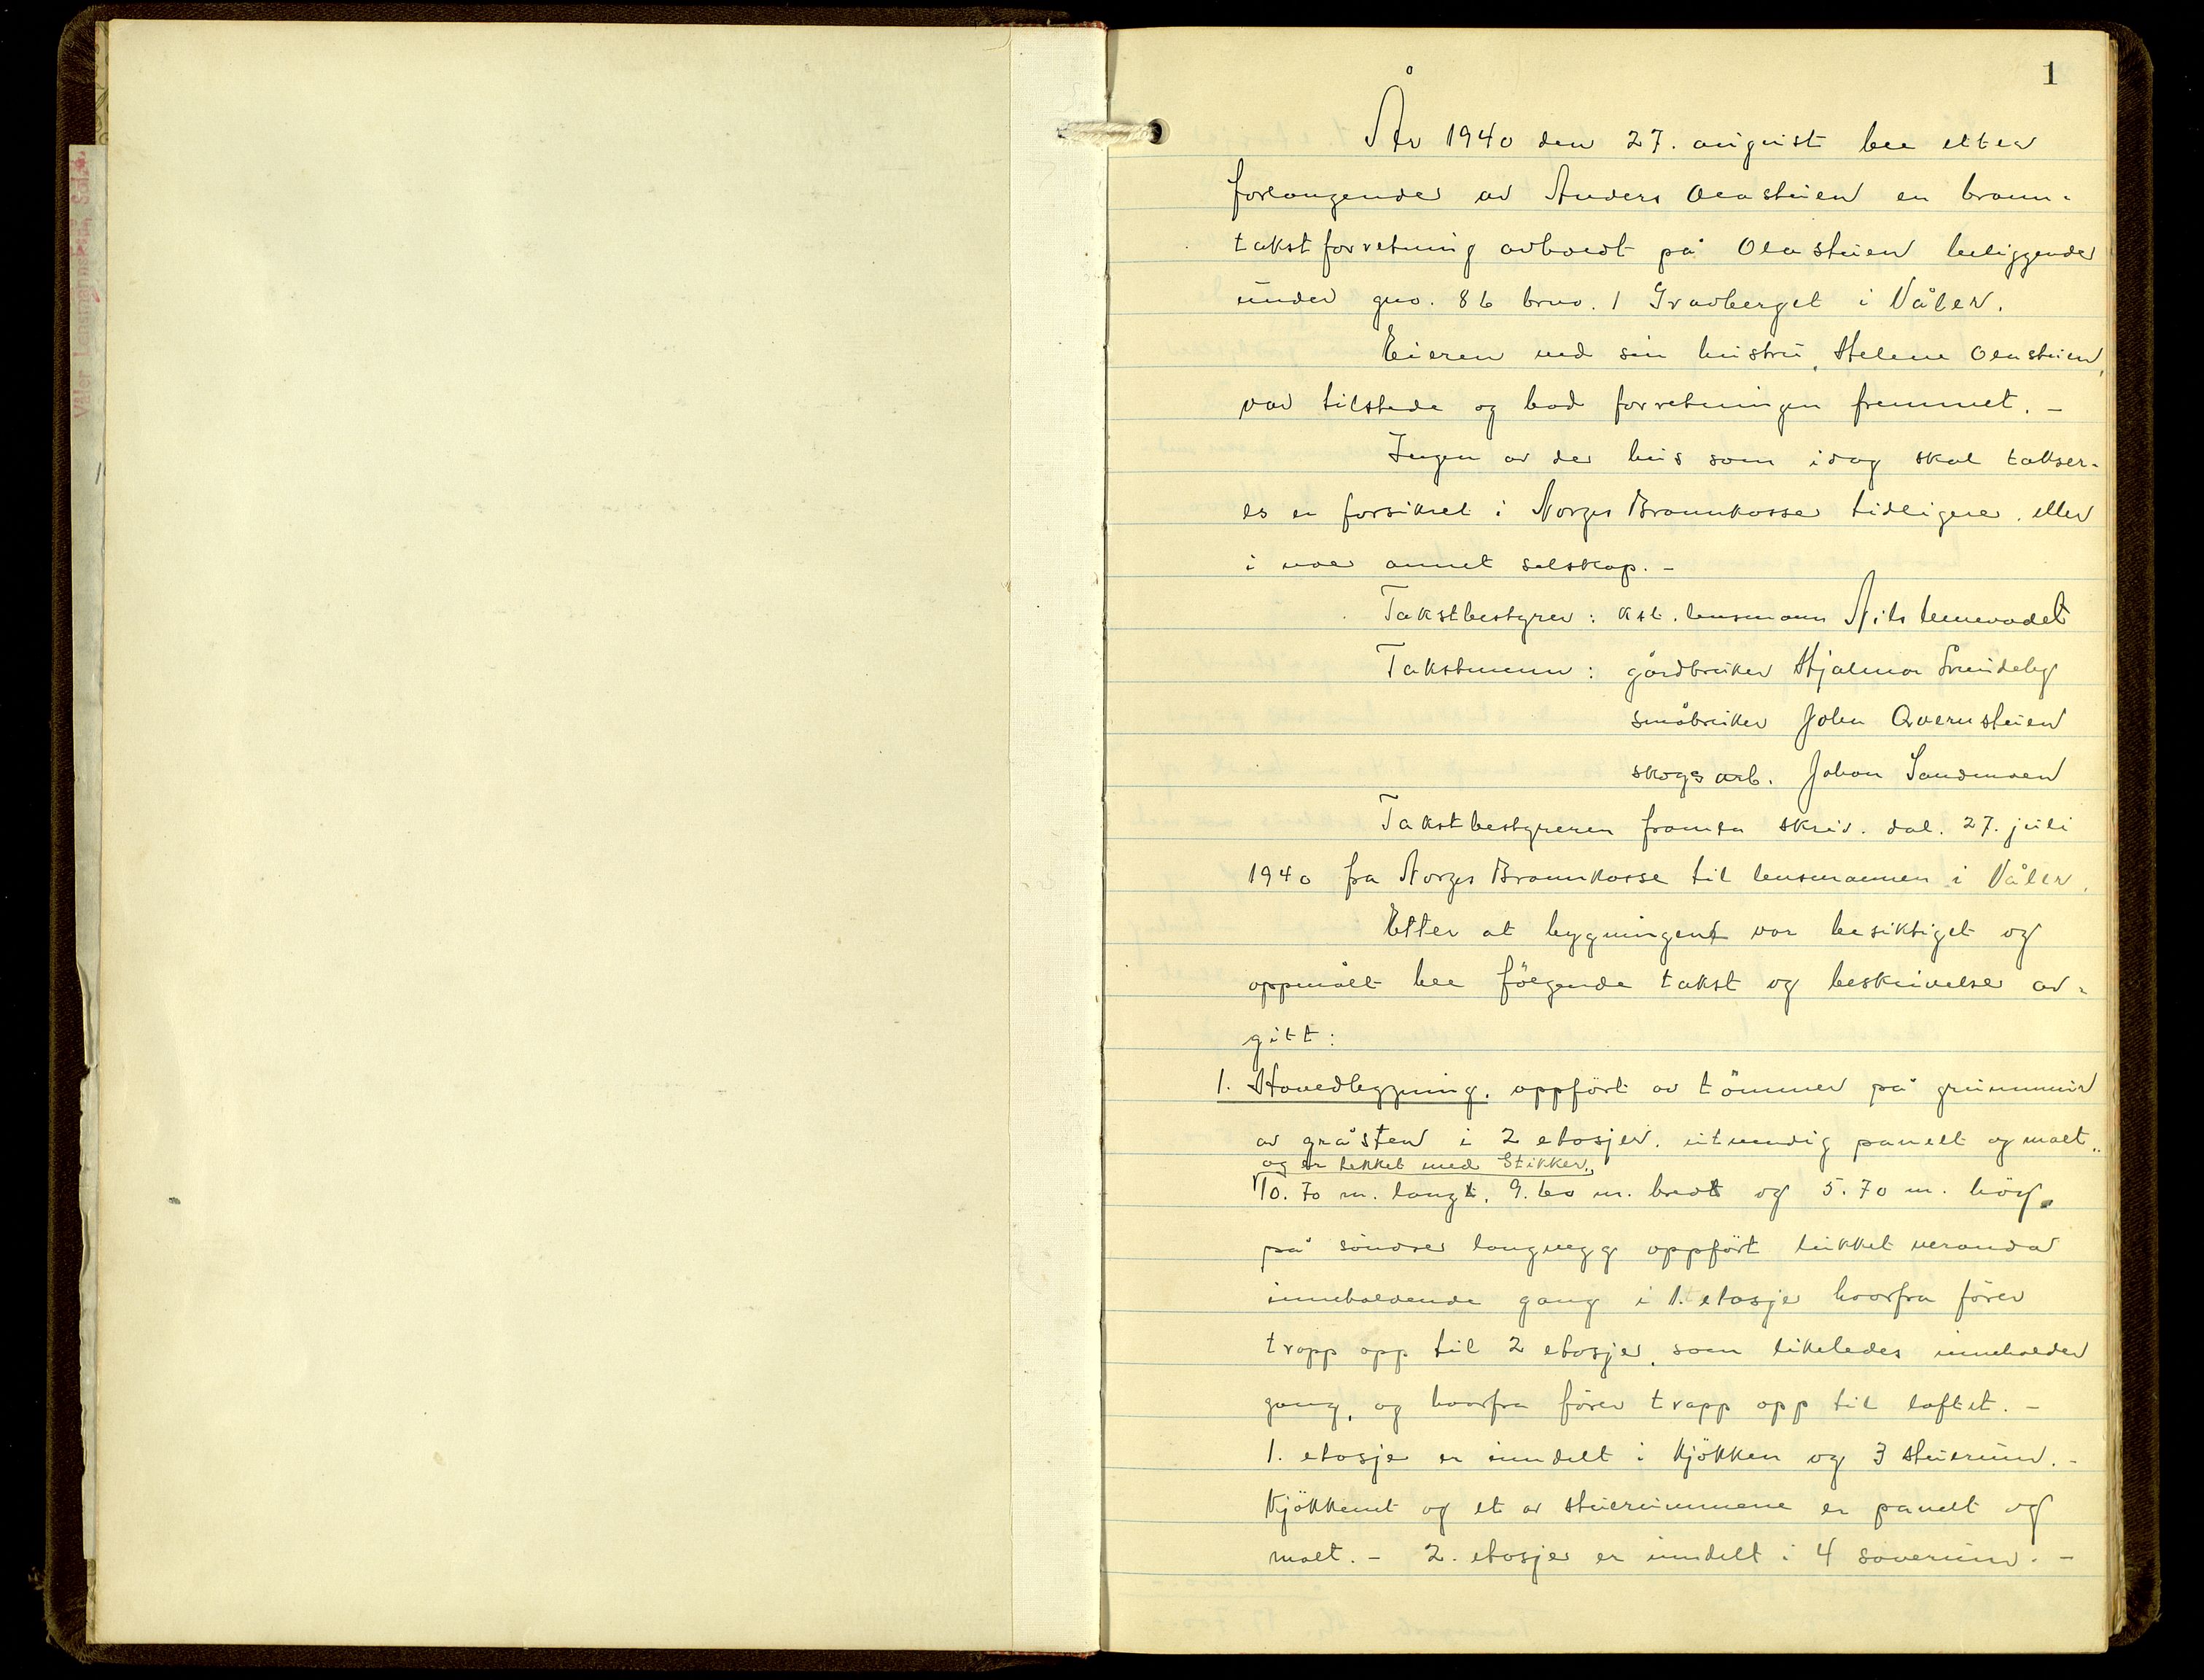 1
År 1940 den 27. august ble etter
forlangende av Anders Olastuen en brann-
takstforretning avholdt på Olastuen beliggende
under gno. 86 brno. 1 Gravberget i Våler.
Eieren med sin hustru, Helene Olastuen,
var tilstede og bad forretningen fremmet. -
Ingen av de hus som idag skal takser-
es er forsikret i Norges Brannkasse tidligere, eller
i noe annet selskap. -
Takstbestyrer: kst. lensmann Nils
Takstmenn: gårdbruker Hjalmar
småbruker John Qvernstuen
skogsarb. Johan Sandmoen
Takstbestyreren framla skriv. dat. 27. juli
1940 fra Norges Brannkasse til lensmannen i Våler.
Etter at bygningene var besiktiget og
oppmålt ble følgende takst og beskrivelse av-
gitt:
1. Hovedbygning, oppført av tømmer på grunnmur
av gråsten i 2 etasjer, utvendig panelt og malt,
og er tekket med Stikker,
10.70 m. lang, 9.60 m. bred og 5.70 m. høy.
på søndre langvegg oppført lukket veranda
inneholdende gang i 1. etasje hvorfra fører
trapp opp til 2 etasje, som likeledes inneholder
gang, og hvorfra fører trapp opp til loftet. -
1. etasje er inndelt i kjøkken og 3 stuerum. -
Kjøkkenet og et av stuerummene er panelt og
malt. - 2. etasje er inndelt i 4 soverum. -
Våler Lensmannskap, Solør.